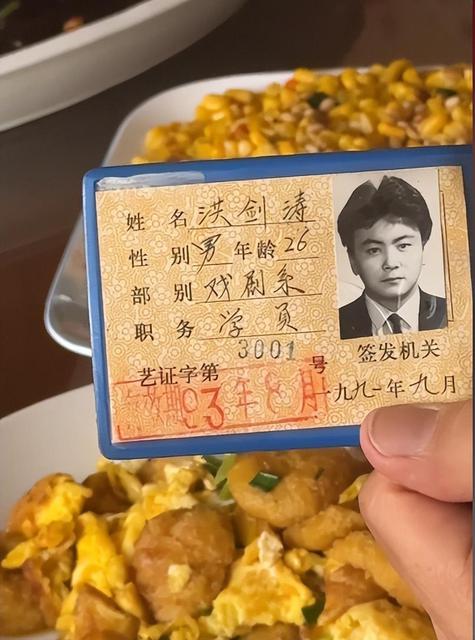 姓 名 洪剑涛
性 别 男 年龄 26
部 别 戏剧系
职 务 学员
3001
艺证字第 号
签发机关
有效期 93年8月
一九九一年九月